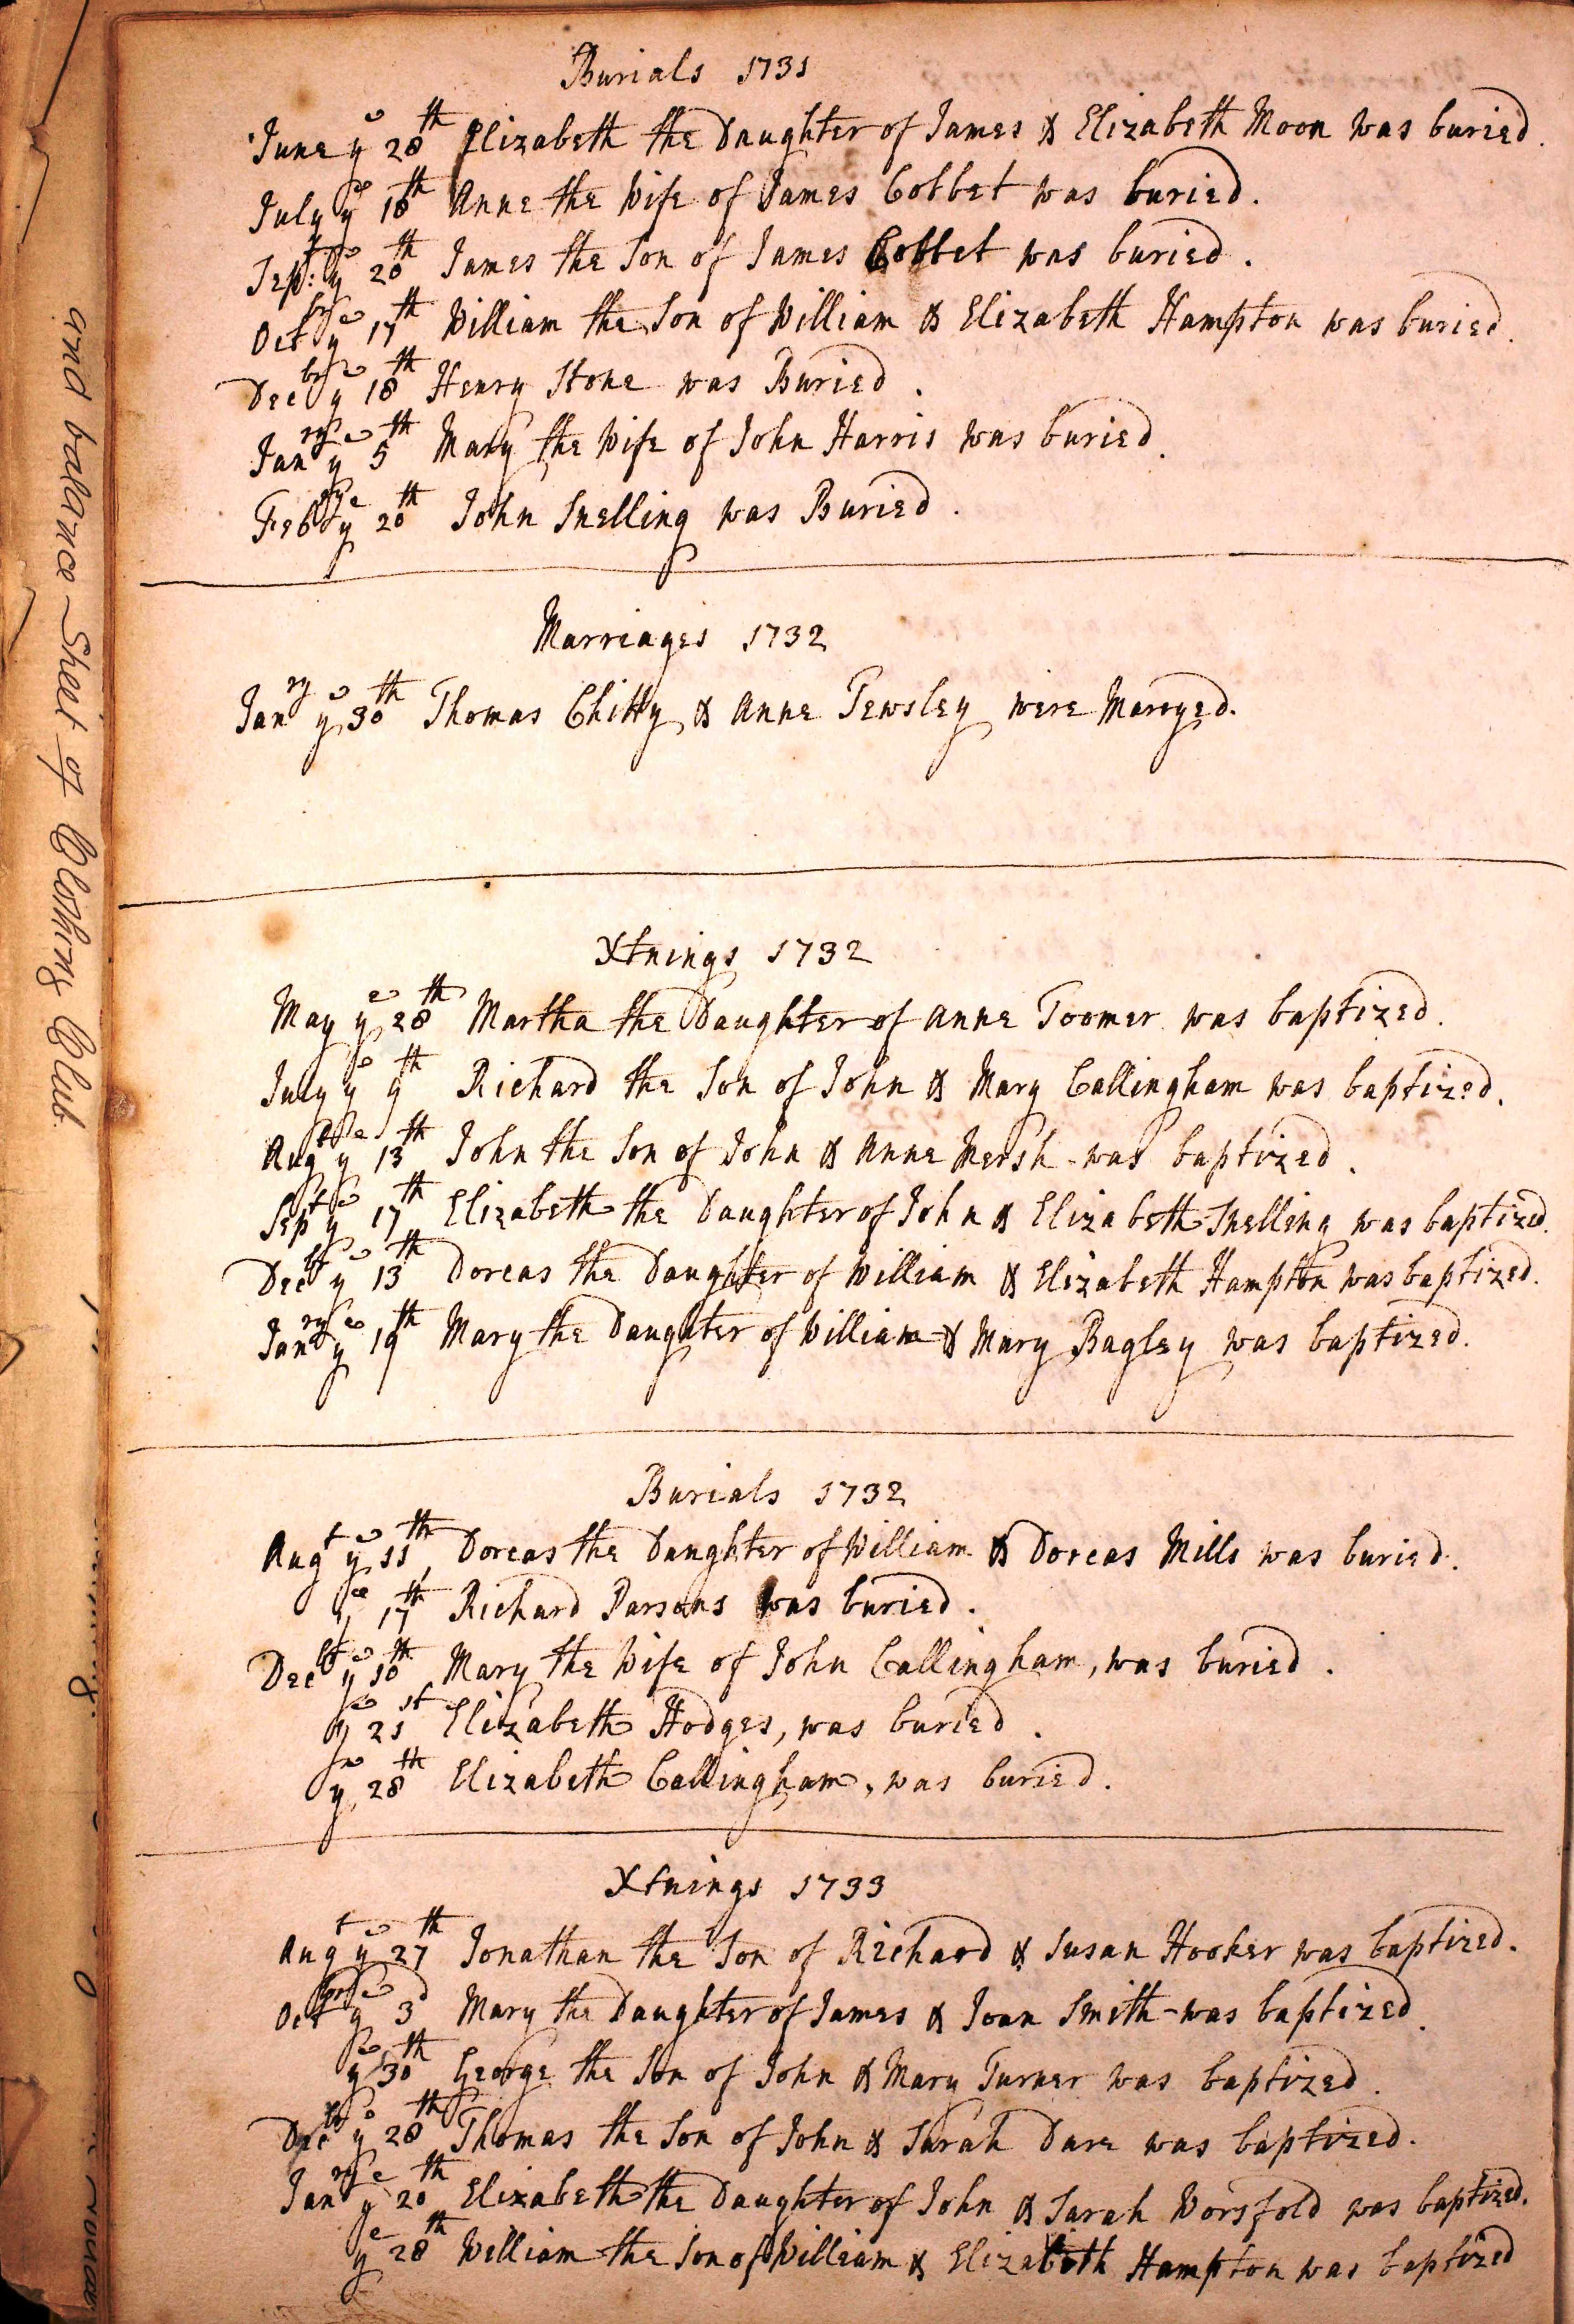 Burials 1731
June yᵉ 28ᵗʰ Elizabeth the Daughter of James & Elizabeth Moon was buried.
July yᵉ 18ᵗʰ Anne the Wife of James Cobbet was buried.
Sepᵗ: yᵉ 20ᵗʰ James the Son of James Cobbet was buried.
Octᵇʳ yᵉ 17ᵗʰ William the Son of William & Elizabeth Hampton was buried.
Decᵇʳ yᵉ 18ᵗʰ Henry Stone was Buried.
Janʳʸ yᵉ 5ᵗʰ Mary the Wife of John Harris was buried.
Febʳʸ yᵉ 20ᵗʰ John Snelling was Buried.
Marriages 1732
Janʳʸ yᵉ 30ᵗʰ Thomas Chitty & Anne Tewsley were Marryed.
Xtnings 1732
May yᵉ 28ᵗʰ Martha the Daughter of Anne Toomer was baptized.
July yᵉ 9ᵗʰ Richard the Son of John & Mary Callingham was baptized.
Augᵗ yᵉ 13ᵗʰ John the Son of John & Anne Mersh was baptized.
Sepᵗ yᵉ 17ᵗʰ Elizabeth the Daughter of John & Elizabeth Snelling was baptized.
Decᵇʳ yᵉ 13ᵗʰ Dorcas the Daughter of William & Elizabeth Hampton was baptized.
Janʳʸ yᵉ 19ᵗʰ Mary the Daughter of William & Mary Bagley was baptized.
Burials 1732
Augᵗ yᵉ 11ᵗʰ, Dorcas the Daughter of William & Dorcas Mills was buried.
yᵉ 17ᵗʰ Richard Parsons was buried.
Decᵇʳ yᵉ 10ᵗʰ, Mary the Wife of John Callingham, was buried.
yᵉ 21ˢᵗ Elizabeth Hodges, was buried.
yᵉ 28ᵗʰ Elizabeth Callingham, was buried.
Xtnings 1733
Augᵗ yᵉ 27ᵗʰ Jonathan the Son of Richard & Susan Hooker was baptized.
Octᵇʳ yᵉ 3ᵈ Mary the Daughter of James & Joan Smith was baptized.
yᵉ 30ᵗʰ George the Son of John & Mary Turner was baptized.
Decᵇʳ yᵉ 28ᵗʰ Thomas the Son of John & Sarah Dare was baptized.
Janʳʸ yᵉ 20ᵗʰ Elizabeth the Daughter of John & Sarah Worsfold was baptized.
yᵉ 28ᵗʰ William the Son of William & Elizabeth Hampton was baptized
and balance Sheet of Clothing Club.